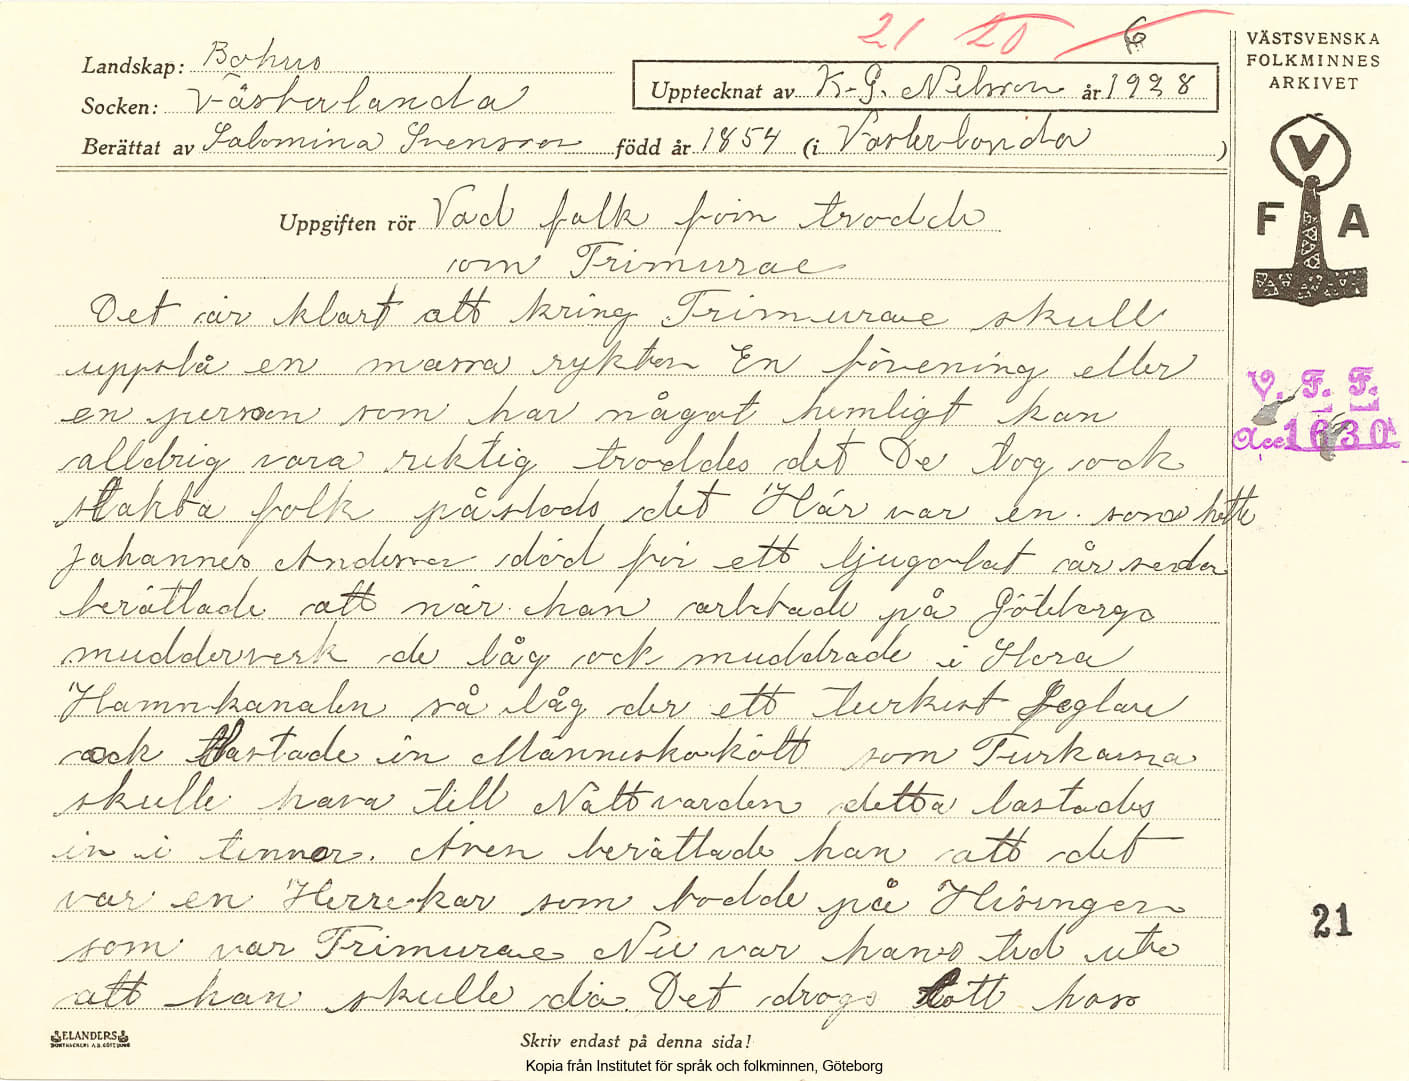 21 20 6
Landskap: Bohus
Socken: Västerlanda
Upptecknat av K-G. Nilsson år 1928
Berättat av Salomina Svensson född år 1854 (i Västerlanda)
VÄSTSVENSKA
FOLKMINNES
ARKIVET
V
F A
Uppgiften rör Vad folk förr trodde
om Frimurae
Det är klart att kring Frimurae skull
uppstå en massa rykten En förening eller
en person som har något hemligt kan
alldrig vara riktig troddes det De tog ock
slakta folk påstods det Här var en som hette
Johannes Andersson död för ett tjugotat år sedan
berättade att när han arbetade på Göteborgs
mudderverk de låg ock muddrade i Stora
Hamnkanalen så låg der ett turkist Seglare
ock lastade in Människokött som Turkarna
skulle hava till Nattvarden detta lastades
in i tunnor. Även berättade han att det
var en Herrekar som bodde på Hisingen
som var Frimurae Nu var hans tid ute
att han skulle dö. Det drogs lott hos
V. F. F.
Acc 1630
21
ELANDERS
BOKTRYCKERI A.B. GÖTEBORG
Skriv endast på denna sida!
Kopia från Institutet för språk och folkminnen, Göteborg